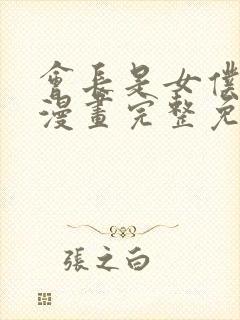 會長是女僕
漫畫完整免
張之白